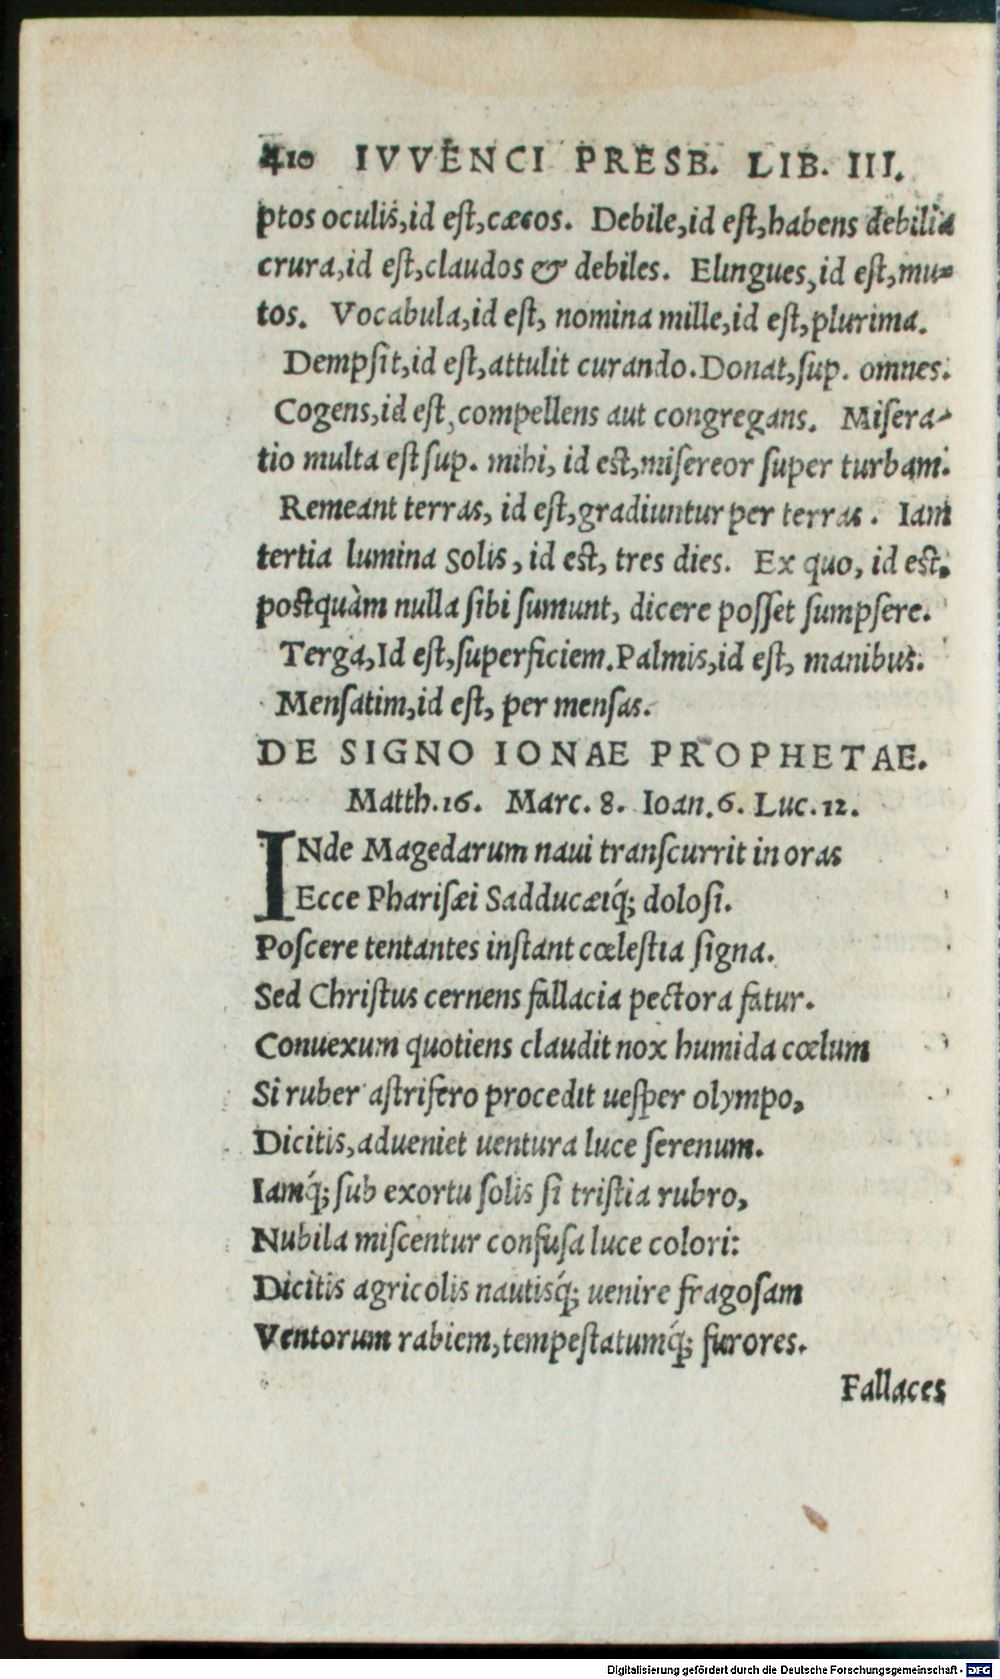 410 IVVENCI PRESB. LIB. III.
ptos oculis, id eſt, cæcos. Debile, id eſt, habens debilia
crura, id eſt, claudos & debiles. Elingues, id eſt, mu-
tos. Vocabula, id eſt, nomina mille, id eſt, plurima.
Dempſit, id eſt, attulit curando. Donat, ſup. omnes.
Cogens, id eſt, compellens aut congregans. Miſera-
tio multa eſt ſup. mihi, id eſt, miſereor ſuper turbam.
Remeant terras, id eſt, gradiuntur per terras. Iam
tertia lumina Solis, id eſt, tres dies. Ex quo, id eſt.
poſtquàm nulla ſibi ſumunt, dicere poſſet ſumpſere.
Terga, Id eſt, ſuperficiem. Palmis, id eſt, manibus.
Menſatim, id eſt, per menſas.
DE SIGNO IONAE PROPHETAE.
Matth. 16. Marc. 8. Ioan. 6. Luc. 12.
INde Magedarum naui tranſcurrit in oras
Ecce Phariſæi Sadducæiq́; doloſi.
Poſcere tentantes inſtant cœleſtia ſigna.
Sed Chriſtus cernens fallacia pectora fatur.
Conuexum quotiens claudit nox humida cœlum
Si ruber aſtrifero procedit ueſper olympo,
Dicitis, adueniet uentura luce ſerenum.
Iamq́; ſub exortu ſolis ſi triſtia rubro,
Nubila miſcentur confuſa luce colori:
Dicitis agricolis nautisq́; uenire fragoſam
Ventorum rabiem, tempeſtatumq́; furores.
Fallaces
Digitalisierung gefördert durch die Deutsche Forschungsgemeinschaft - DFG